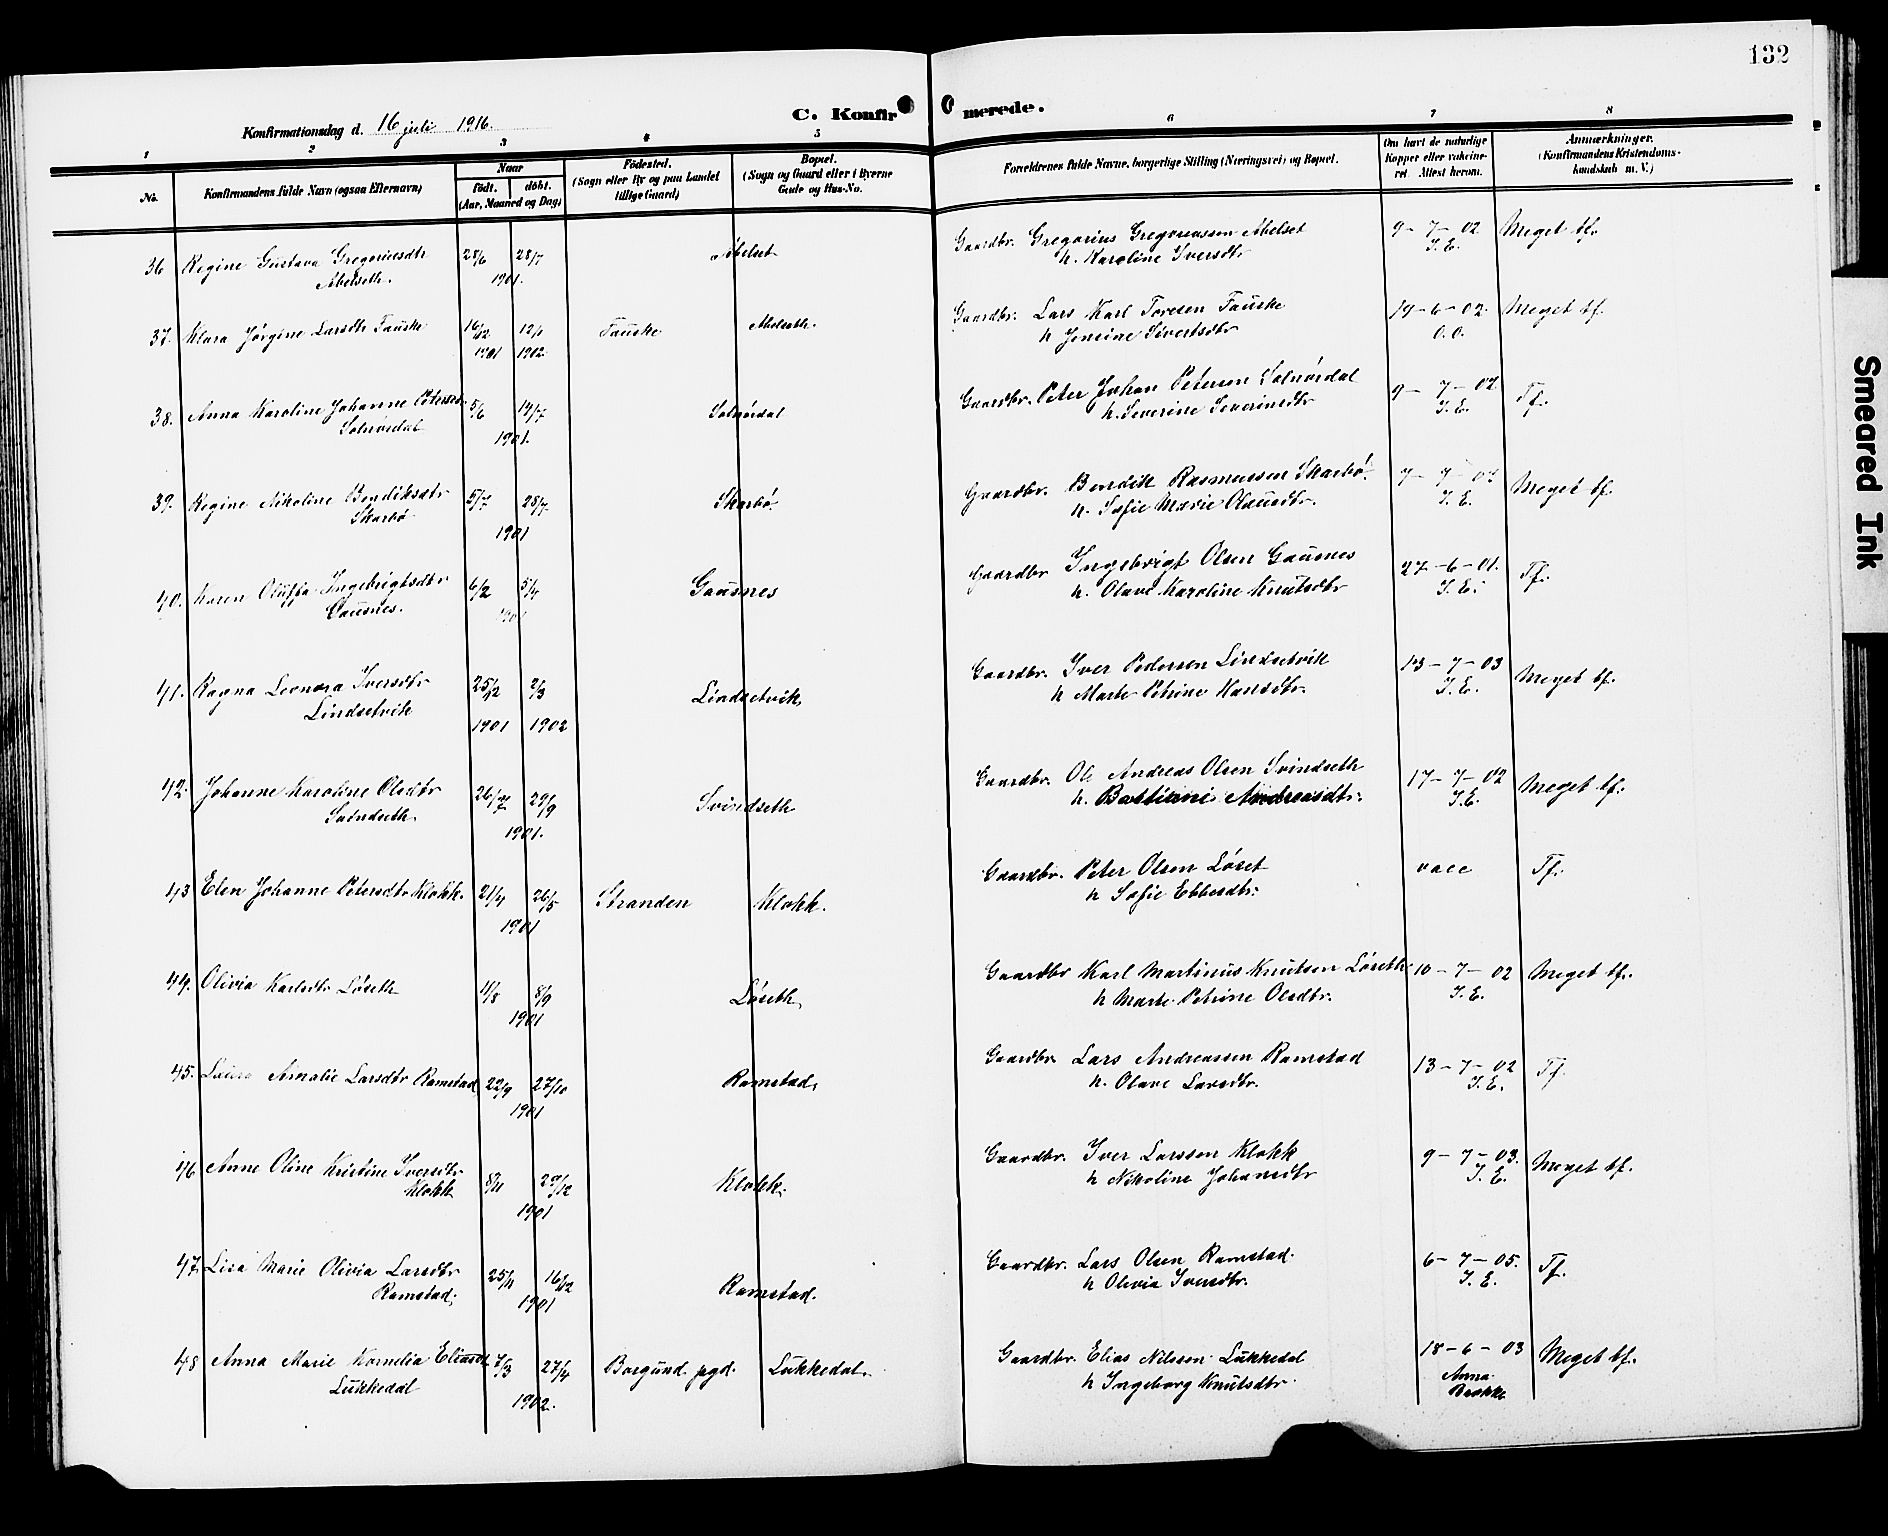 132
Konfirmationsdag d. 16 juli 1916.
C. Konfirmerede.
1 2 3 4 5 6 7 8
No.
Konfirmandens fulde Navn (ogsaa Efternavn)
Naar
født. døbt.
(Aar, Maaned og Dag)
Fødested.
(Sogn eller By og paa Landet
tillige Gaard)
Bopæl.
(Sogn og Gaard eller i Byerne
Gade og Hus-No.
Forældrenes fulde Navne, borgerlige Stilling (Næringsvei) og Bopæl.
Om havt de naturlige
Kopper eller vakcine-
ret. Attest herom.
Anmærkninger.
(Konfirmandens Kristendoms-
kundskab m. V.)
36 Regine Gustava Gregoriusdtr 28/6 28/7 Abelset Gaardbr. Gregorius Gregoriussen Abelset 9-7-02 Meget tf.
Abelseth. 1901. h. Karoline Iversdtr I.E.
37. Klara Jørgine Larsdtr Fauske 16/12 12/1 Fauske Abelseth. Gaardbr. Lars Karl Toresen Fauske 19-6-02. Meget tf.
1901 1902. h Jensine Sivertsdtr O.O.
38. Anna Karoline Johanne Petersdtr 5/6 14/7 Solnørdal Gaardbr. Peter Johan Petersen Solnørdal 9-7-02 Tf.
Solnørdal 1901. h. Severine Severinsdtr I.E.
39. Regine Nikoline Bendiksdtr 5/7 28/7 Skarbø Gaardbr. Bendik Rasmussen Skarbø. 7-7-02 Meget tf.
Skarbø 1901 h. Sofie Marie Olausdtr. I.E.
40. Karen Oluffa Ingebrigtsdtr 6/2 5/4 Gausnes Gaardbr Ingebrigt Olsen Gausnes 27-6-01. Tf.
Gausnes. 1901 h. Olave Karoline Knutsdtr I.E.
41. Ragna Leonora Iversdtr 25/12 2/3 Lindsetvik Gaardbr. Iver Pedersen Lindsetvik 13-7-03 Meget tf.
Lindsetvik 1901 1902 h Marte Petrine Hansdtr. I.E.
42. Johanne Karoline Olsdtr 26/7 29/9 Svindseth Gaardbr. Ole Andreas Olsen Svindseth 17-7-02 Meget tf.
Svindseth. 1901. h. Bastiane Andreasdtr. I.E.
43 Elen Johanne Petersdtr Klokk. 21/4 26/5 Stranden Klokk. Gaardbr. Peter Olsen Løset vacc Tf.
1901 h Sofie Ebbesdtr.
44. Olivia Karlsdtr Løseth 4/8 8/9 Løseth Gaardbr Karl Martinus Knutsen Løseth 10-7-02 Meget tf.
1901 h Marte Petrine Olsdtr. I.E.
45. Laura Amalie Larsdtr Ramstad 22/9 27/10 Ramstad Gaardbr. Lars Andreassen Ramstad 13-7-02 Tf.
1901 h. Olave Larsdtr. I.E.
46 Anne Oline Kristine Iversdtr 8/11 29/12 Klokk. Gaardbr. Iver Larssen Klokk 9-7-03. Meget tf.
Klokk 1901 h Nikoline Johansdtr I.E.
47. Lisa Marie Olivia Larsdtr 25/11 16/12 Ramstad. Gaardbr. Lars Olsen Ramstad. 6-7-05. Tf.
Ramstad. 1901 h Olivia Iversdtr. I.E.
48 Anna Marie Kornelia Eliasdt 7/3 27/4 Borgund. pgd. Lukkedal. Gaardbr. Elias Nilssen Lukkedal 18-6-03 Meget tf.
Lukkedal 1902. h Ingeborg Knutsdtr. Anna
Brokke
Smeared Ink